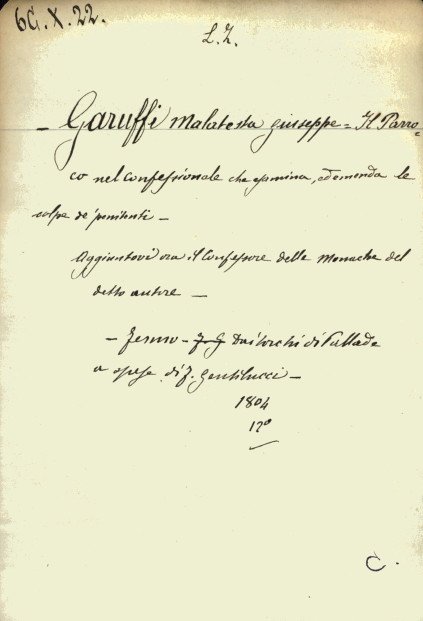 6G.X.22.
L.Z.
- Garuffi Malatesta Giuseppe = Il Parro-
co nel confessionale che esamina, ed emenda le
colpe de' penitenti -
Aggiuntovi ora il Confessore delle Monache del
detto autore -
- Fermo - Dai torchi di Pallade
a spese di F. Gentilucci -
1804
12°
C.